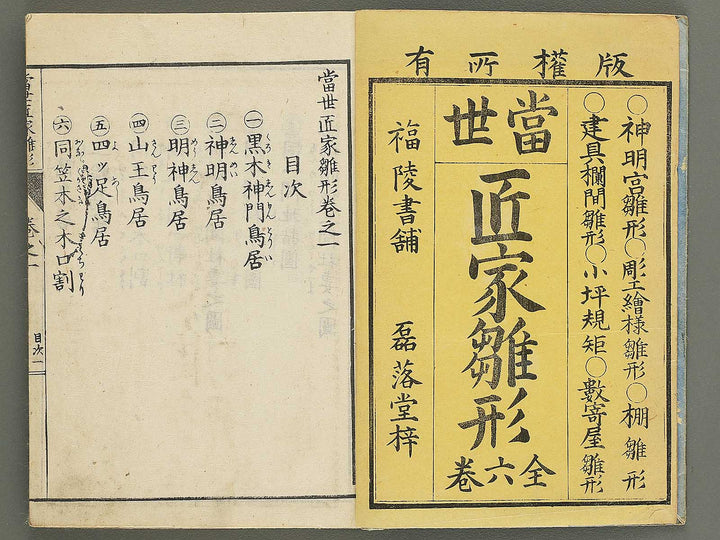 版權所有
○神明宮雛形○彫工繪様雛形○棚雛形
○建具欄間雛形○小坪規矩○數寄屋雛形
當世
匠家雛形
全六卷
福陵書舗
磊落堂梓
當世匠家雛形卷之一
目次
㊀黒木神門鳥居
㊁神明鳥居
㊂明神鳥居
㊃山王鳥居
㊄四ッ足鳥居
㊅同笠木之木口割
當世匠家雛形
卷之一
目次一